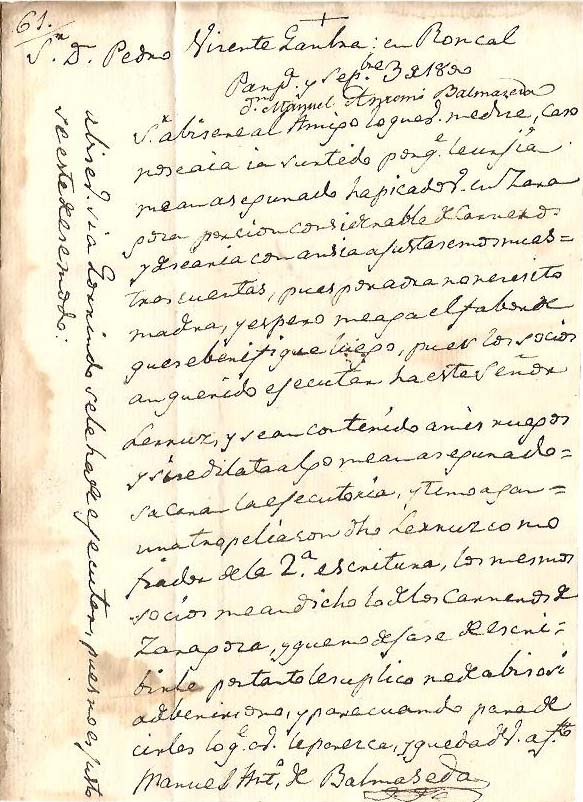 61.
+
S.r D.n Pedro Vicente Gambra: en Roncal
Pamp.a y Sep.bre 3 de 18
D.n Manuel Antonio Balmazeda
S.r abisere al Amigo lo que V. me dice, caso
no seaia surtido porq.e
mean asegurado ha picado V. en Zara
goza porcion considerable de Carneros
y desearia con ansia ajustasemos nues-
tras cuentas, pues por aora no necesito
madra, y espero me aga el fabor de
que se berifique luego, pues los socios
an querido ejecutar ha este Señor
Lerruz, y sean contenido a mis ruegos
y si se dilata algo mean asegurado-
sacaran la ejecutoria, y temo agan-
una tropelia con dho Lerruz como
fiador de la 2.a escritura, los mesmos
socios mean dicho lo de los Carneros de
Zaragoza, y que no dejase de escri
birle por tanto le suplico me de abiso si
ad benir o no, y para cuando para de
cirles lo q.e a V. le parezca, y queda de V. af.to
Manuel Ant.o de Balmazeda
abise V. si a Lorrindo se le ha de ejecutar, pues no es justo
se este de ese modo: